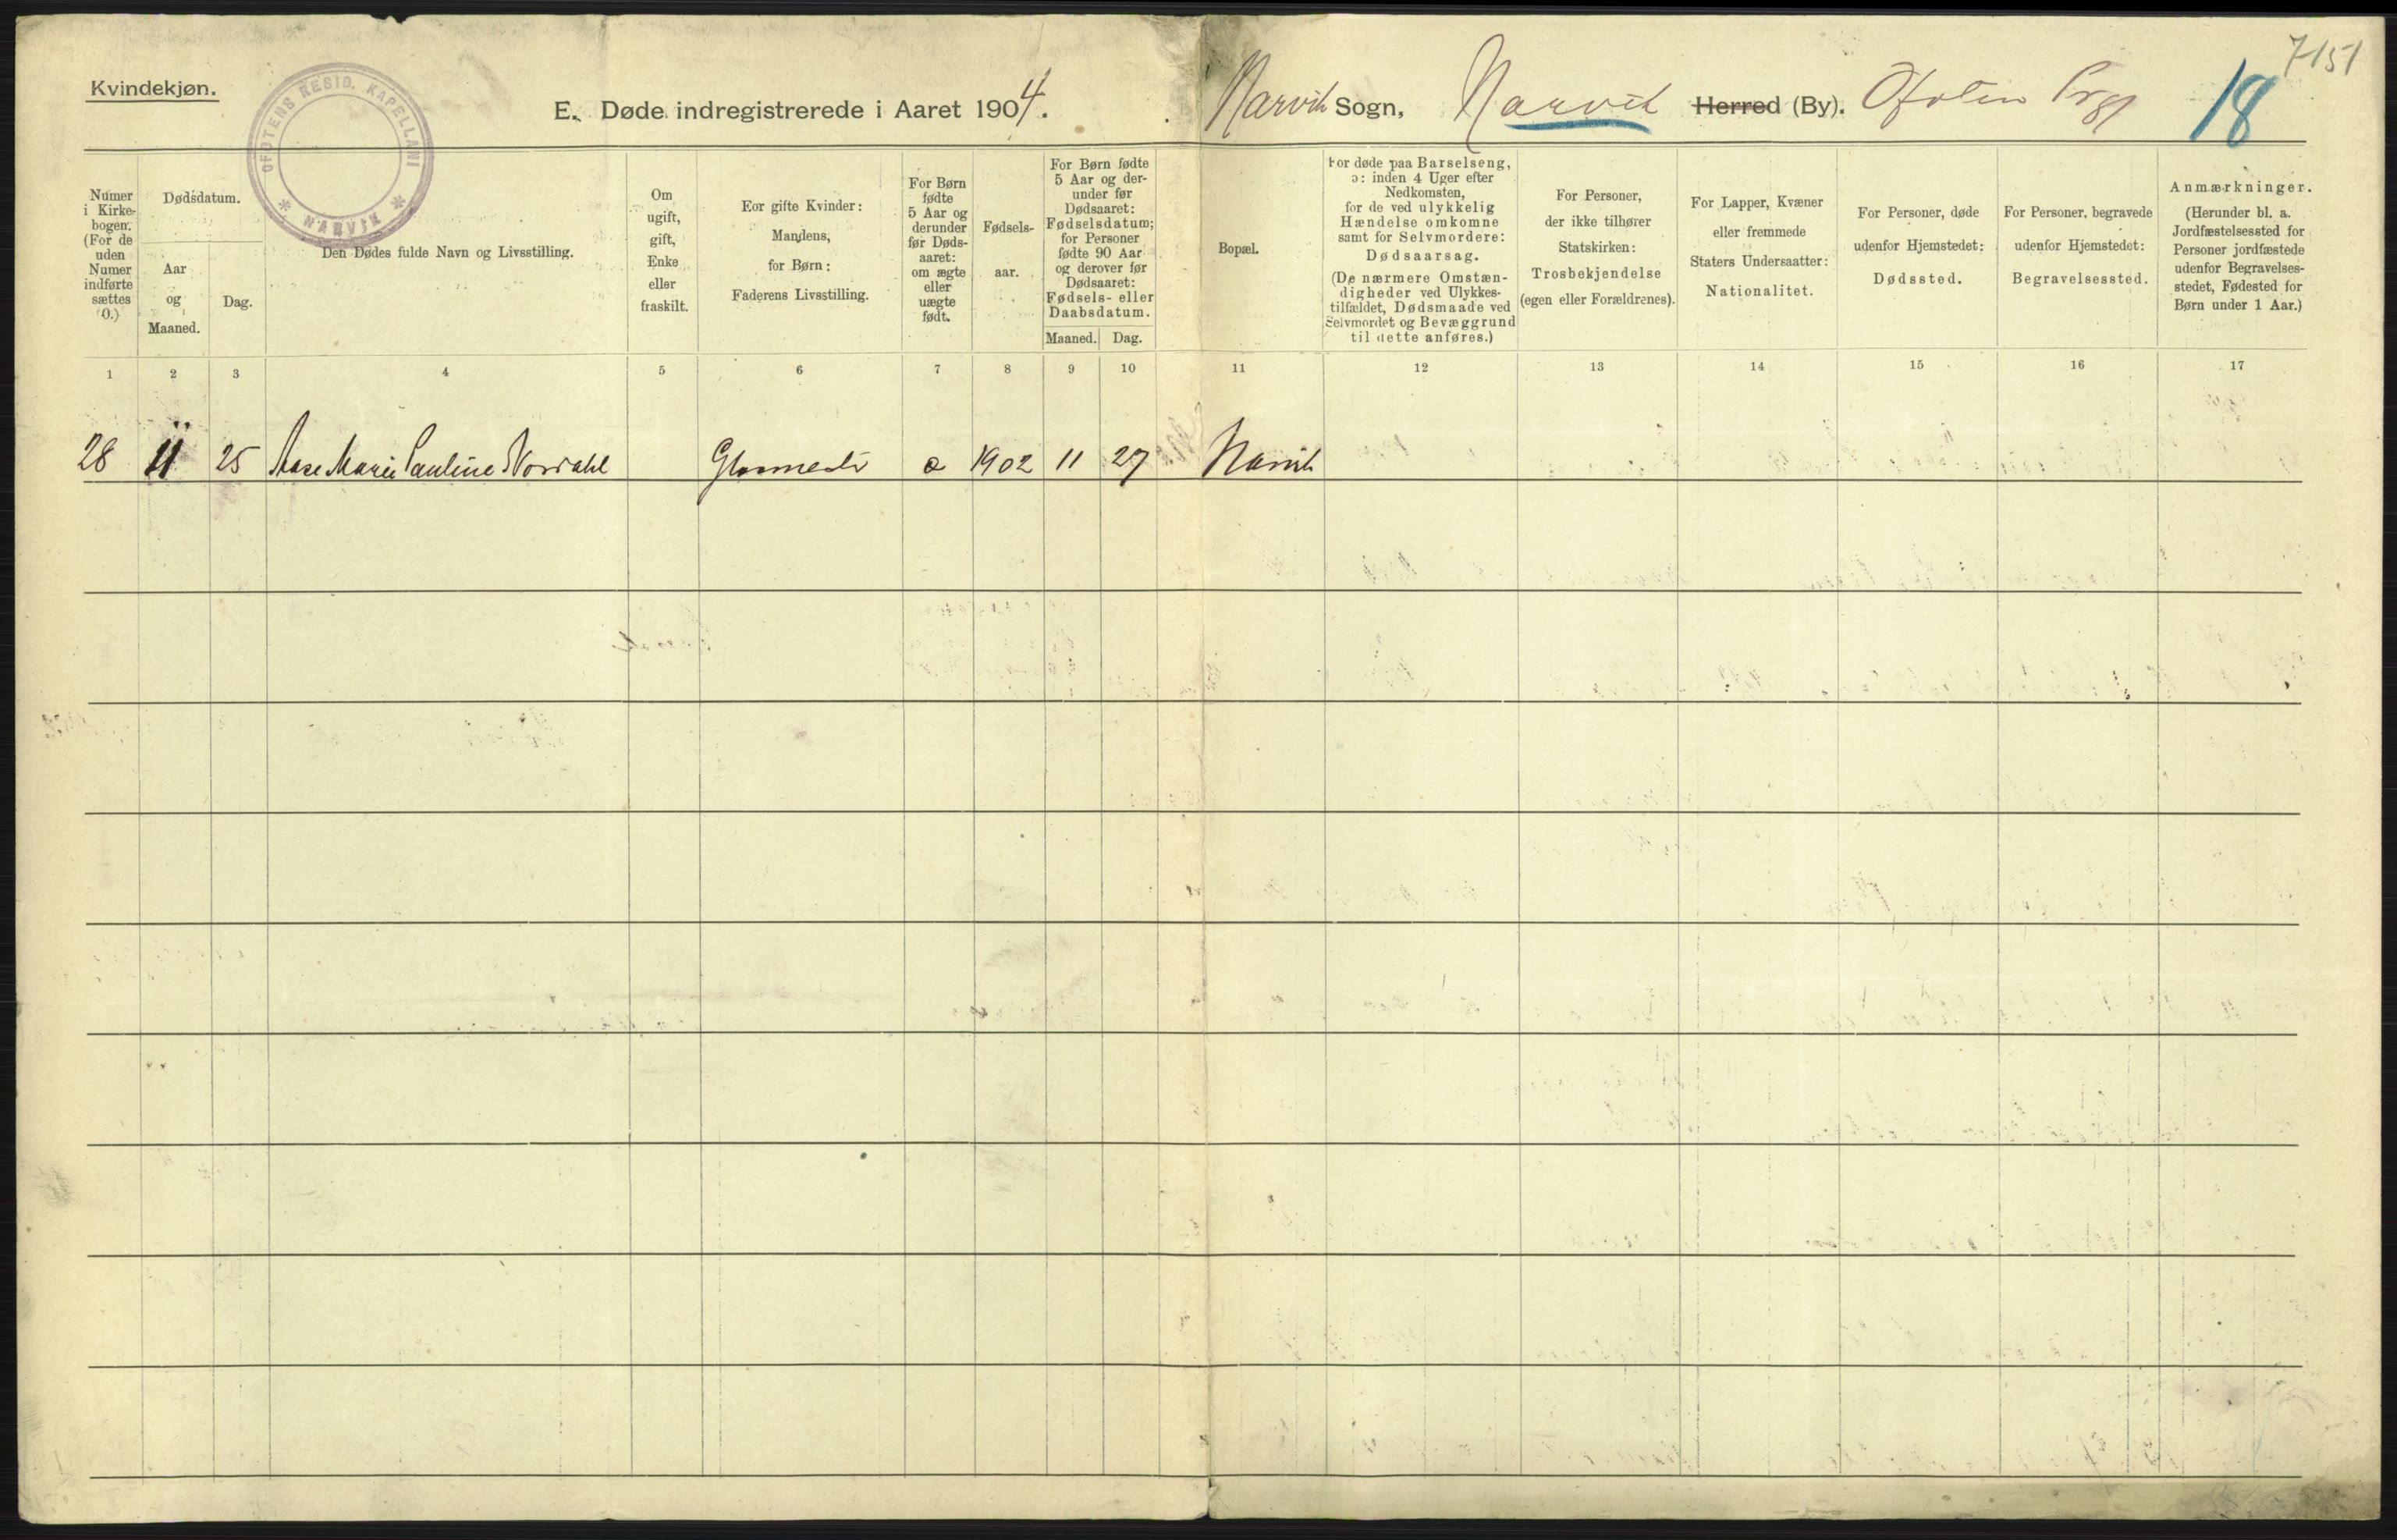 Kvindekjøn.
OFOTENS RESID. KAPELLANI
* NARVIK *
E. Døde indregistrerede i Aaret 1904.
Narvik Sogn, Narvik Herred (By). Ofoten Prgj
18
7151
Numer
i Kirke-
bogen.
(For de
uden
Numer
indførte
sættes
0.)
Dødsdatum.
Aar
og
Maaned.
Dag.
Den Dødes fulde Navn og Livsstilling.
Om
ugift,
gift,
Enke
eller
fraskilt.
For gifte Kvinder:
Mandens,
for Børn:
Faderens Livsstilling.
For Børn
fødte
5 Aar og
derunder
før Døds-
aaret:
om ægte
eller
uægte
født.
Fødsels-
aar.
For Børn fødte
5 Aar og der-
under før
Dødsaaret:
Fødselsdatum;
for Personer
fødte 90 Aar
og derover før
Dødsaaret:
Fødsels- eller
Daabsdatum.
Maaned. Dag.
Bopæl.
For døde paa Barselseng,
ɔ: inden 4 Uger efter
Nedkomsten,
for de ved ulykkelig
Hændelse omkomne
samt for Selvmordere:
Dødsaarsag.
(De nærmere Omstæn-
digheder ved Ulykkes-
tilfældet, Dødsmaade ved
Selvmordet og Bevæggrund
til dette anføres.)
For Personer,
der ikke tilhører
Statskirken:
Trosbekjendelse
(egen eller Forældrenes).
For Lapper, Kvæner
eller fremmede
Staters Undersaatter:
Nationalitet.
For Personer, døde
udenfor Hjemstedet:
Dødssted.
For Personer, begravede
udenfor Hjemstedet:
Begravelsessted.
Anmærkninger.
(Herunder bl. a.
Jordfæstelsessted for
Personer jordfæstede
udenfor Begravelses-
stedet, Fødested for
Børn under 1 Aar.)
1 2 3 4 5 6 7 8 9 10 11 12 13 14 15 16 17
28 11 25 Aase Marie Pauline Nordahl Glasmester 1902 11 27 Narvik